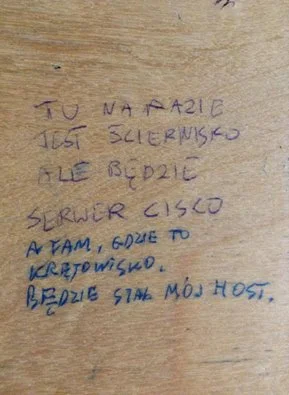 TU NA RAZIE
JEST ŚCIERNISKO
ALE BĘDZIE
SERWER CISCO
A TAM, GDZIE TO
KRĘTOWISKO.
BĘDZIE STAŁ MÓJ HOST.